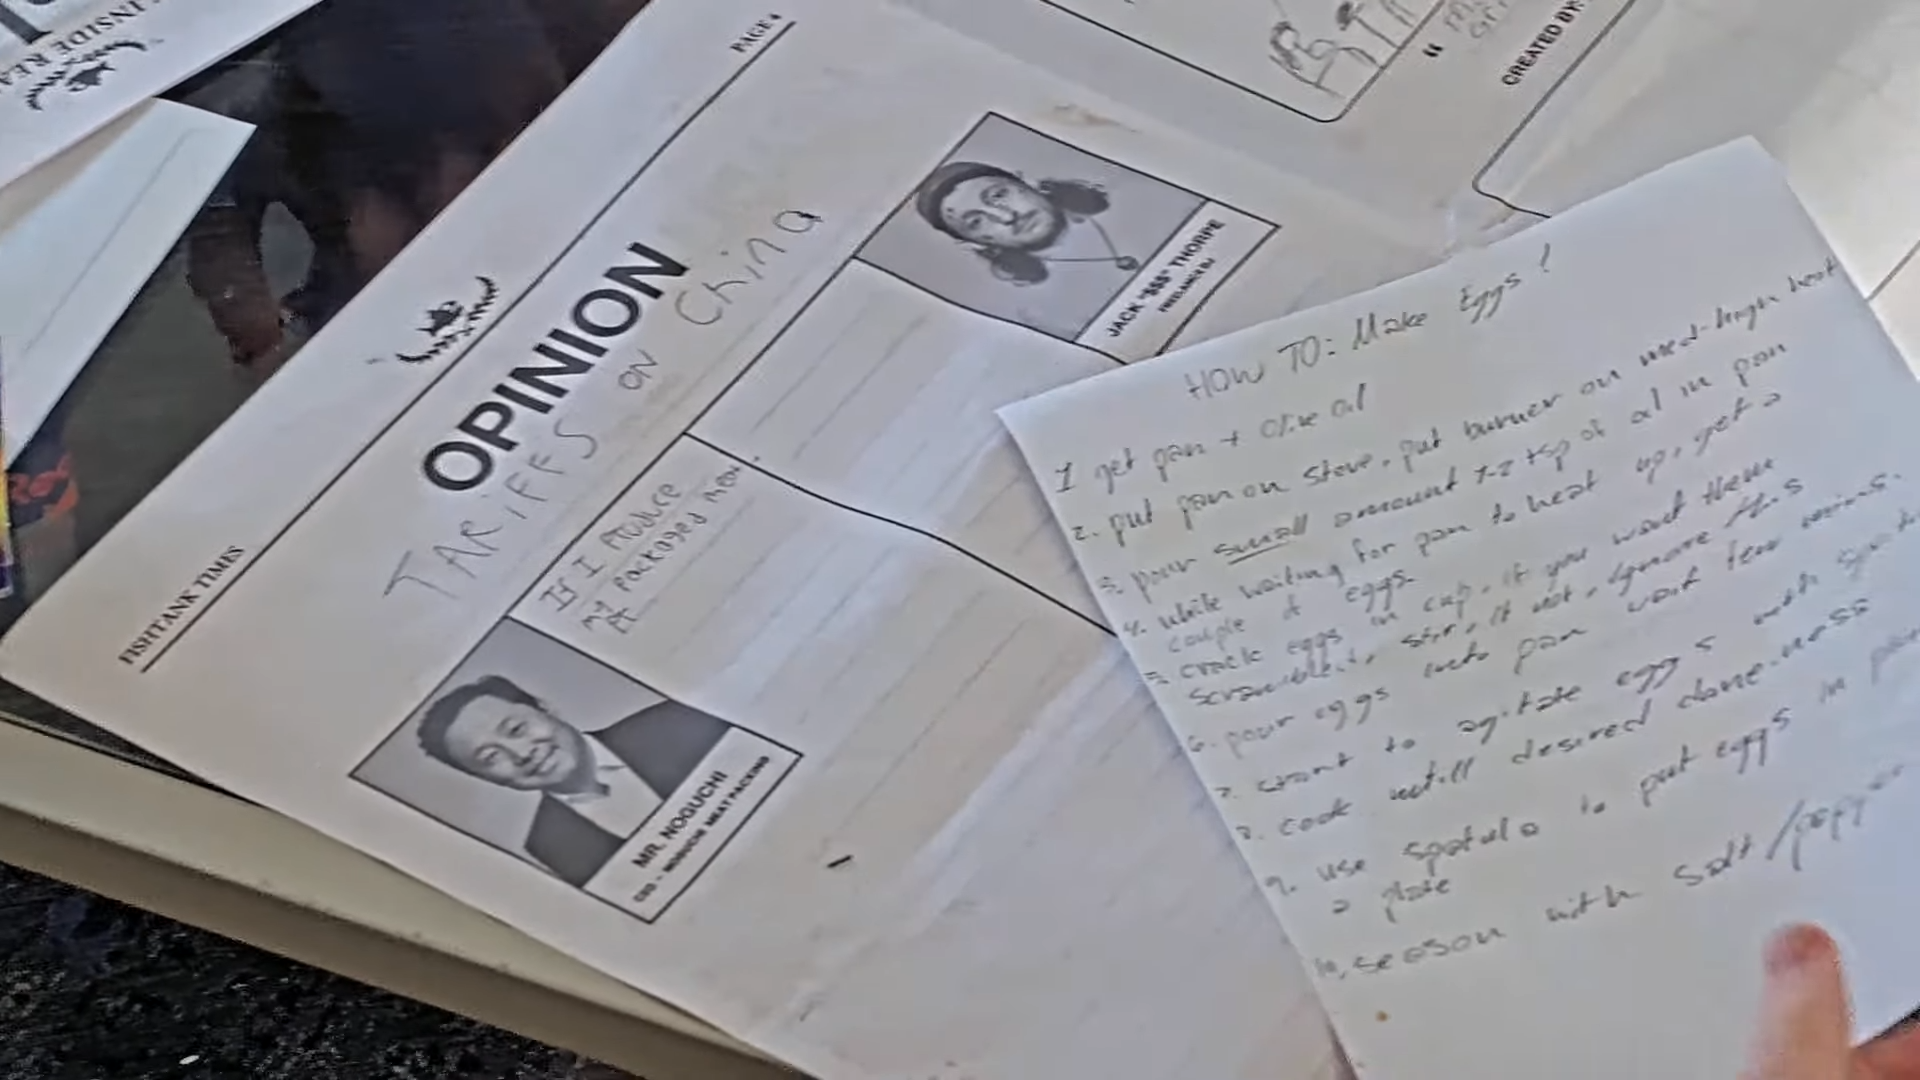 INSIDE REA
FISHTANK TIMES
PAGE 4
OPINION
TARIFFS ON China
JACK "$$$" THORPE
FREELANCE DJ
If I Produce
my packaged meat
MR. NOGUCHI
CEO - NOGUCHI MEAT PACKING
"
CREATED BY:
HOW TO: Make Eggs!
1 get pan + olive oil
2. put pan on stove, put burner on med-high heat
3. pour small amount 1-2 tsp of oil in pan
4. while waiting for pan to heat up, get a
couple of eggs.
5. crack eggs in cup, if you want them
scrambled, stir, if not, ignore this
6. pour eggs into pan wait few mins.
7. start to agitate eggs with
8. cook untill desired done-ness
9. use spatula to put eggs in
a plate
10. season with salt/pepper